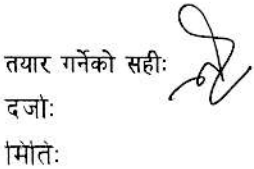 तयार गर्नेको सहीः
दर्जाः
मितिः